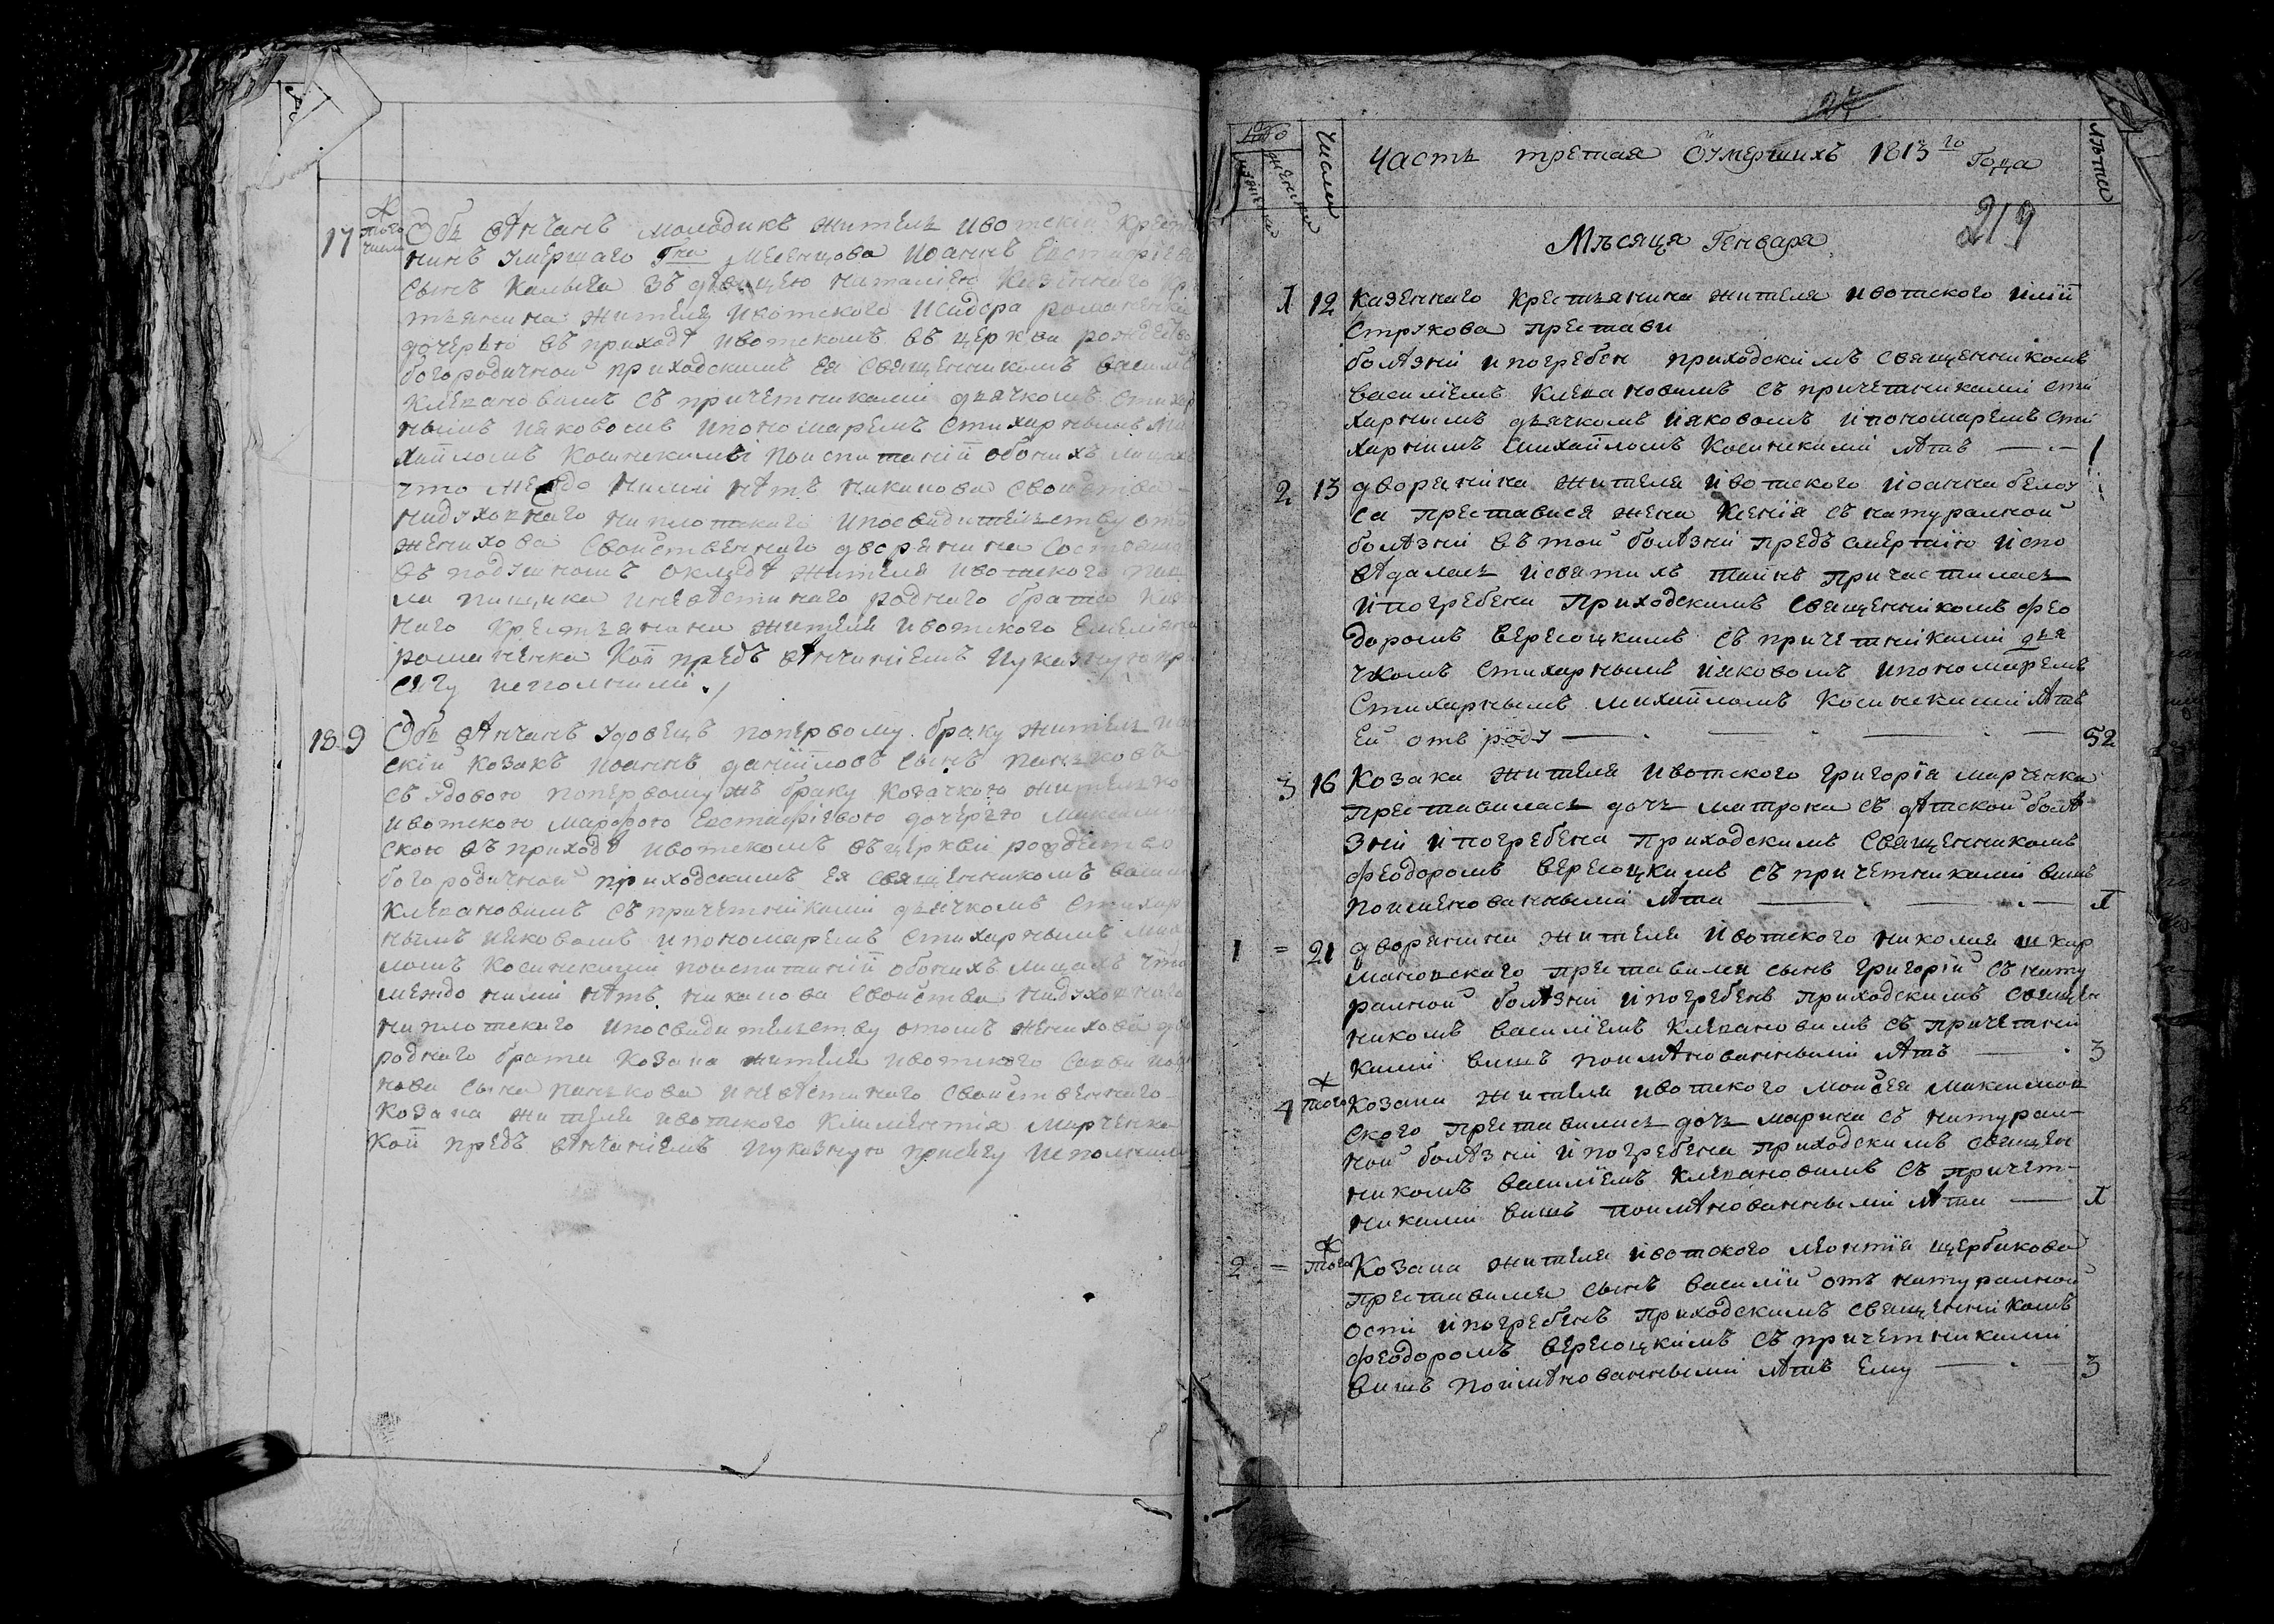 17 того числа Обвѣнчанъ молодикъ житель ивотскій крестя
нинъ умершаго Гна Иоаннъ Евстафіевъ
сынъ з девицею наталіею казенного кр
тянина жителя ивотского Исидора романенка
дочерью въ приходѣ ивотскомъ въ церкви рождество
богородичной приходскимъ ея священникомъ васил
Клепановимъ съ причетниками дячкомъ стихар
нымъ иаковомъ ипономаремъ стихарнымъ ми
хаиломъ Косинскими поиспитаніи обоихъ лицахъ
что между ними нѣтъ никакова свойства
нидуховнаго ниплотскаго ипосвидителству
женихова свойственнаго дворянина
въ подушномъ окладѣ жителя ивотского
пищика иневѣстинаго родного брата
ного крестянина жителя ивотского Емеляна
романенка кои предъ вѣнчаніемъ иуказную пр
сягу исполнили.
18 9 Обвѣнчанъ удовецъ поперво­му браку житель
скій козакъ иоаннъ даніиловъ сынъ панковъ
съ удовою попервому жъ браку козачкою жителко
ивотскою марфою Евстафіевою дочерью максимов
скою въ приходѣ ивотскомъ въ церкви рождество
богородичной приходскимъ ея священникомъ васил
Клепановимъ съ причетниками дячкомъ стихар
нымъ иаковомъ ипономаремъ стихарнымъ миха
ломъ Косинскими поиспитаніи обоихъ лицахъ что
междо ними нѣтъ никакова свойства нидуховнаго
ниплотскаго ипосвидителству отомъ женихова дво
родного брата козака жителя ивотского Савви
нова сына панкова иневѣстинаго свойственнаго
козака жителя ивотского Климентія марченка
кои предъ вѣнчаніемъ иуказную присягу исполнили
Числа Часть третая Оумершихъ 1813го Года Лѣта
219
Мѣсяця Генваря
1 12 казенного крестянина жителя ивотского иліи
струкова престави
болѣзни ипогребен приходскимъ священникомъ
василіемъ Клепановимъ съ причетниками сти
харнымъ дячкомъ иаковомъ ипономаремъ сти
харнимъ михаиломъ Косинскими лѣтъ 1
2 13 дворянина жителя ивотского иоанна белоу
са преставися жена ксенія съ натуралной
болѣзни въ той болѣзни предъ смертію испо
ведалась исвятихъ таинъ причастилась
ипогребена приходскимъ священникомъ фео
доромъ верегоцкимъ съ причетниками дя
чкомъ стихарнымъ иаковомъ ипономаремъ
стихарнымъ михаиломъ Косинскими лѣтъ
ей отъ роду 52
3 16 Козака жителя ивотского григорія марченка
преставилась дочъ матрона съ дѣтской болѣ
зни ипогребена приходскимъ священникомъ
феодоромъ верегоцкимъ съ причетниками вишъ
поименованными лѣта 1
1 = 21 дворянина жителя ивотского николая шкар
мановского преставился сынъ григорій съ нату
ралной болѣзни ипогребенъ приходскимъ священ
никомъ василіемъ Клепановимъ съ причетни
ками вишъ поимѣнованными лѣтъ 3
4 того Козака жителя ивотского моисея максимов
ского преставилась дочъ марина съ натурал-
ной болѣзни ипогребена приходскимъ священ
никомъ василіемъ Клепановимъ съ причет-
никами вишъ поимѣнованными лѣта 1
2 = того Козака жителя ивотского леонтія щербакова
преставился сынъ василій отъ натуралной
ости ипогребенъ приходскимъ священникомъ
феодоромъ верегоцкимъ съ причетниками
вишъ поимѣнованными лѣтъ Ему 3